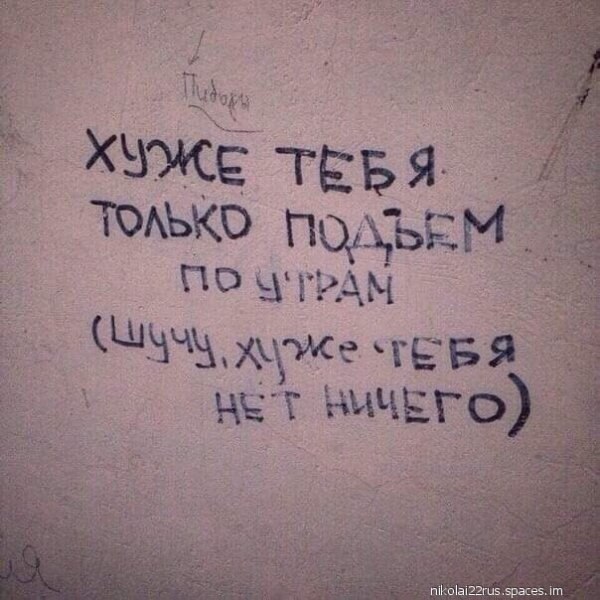 Пидоры
ХУЖЕ ТЕБЯ
ТОЛЬКО ПОДЪЕМ
ПО УТРАМ
(ШУЧУ, ХУЖЕ ТЕБЯ
НЕТ НИЧЕГО)
nikolai22rus.spaces.im